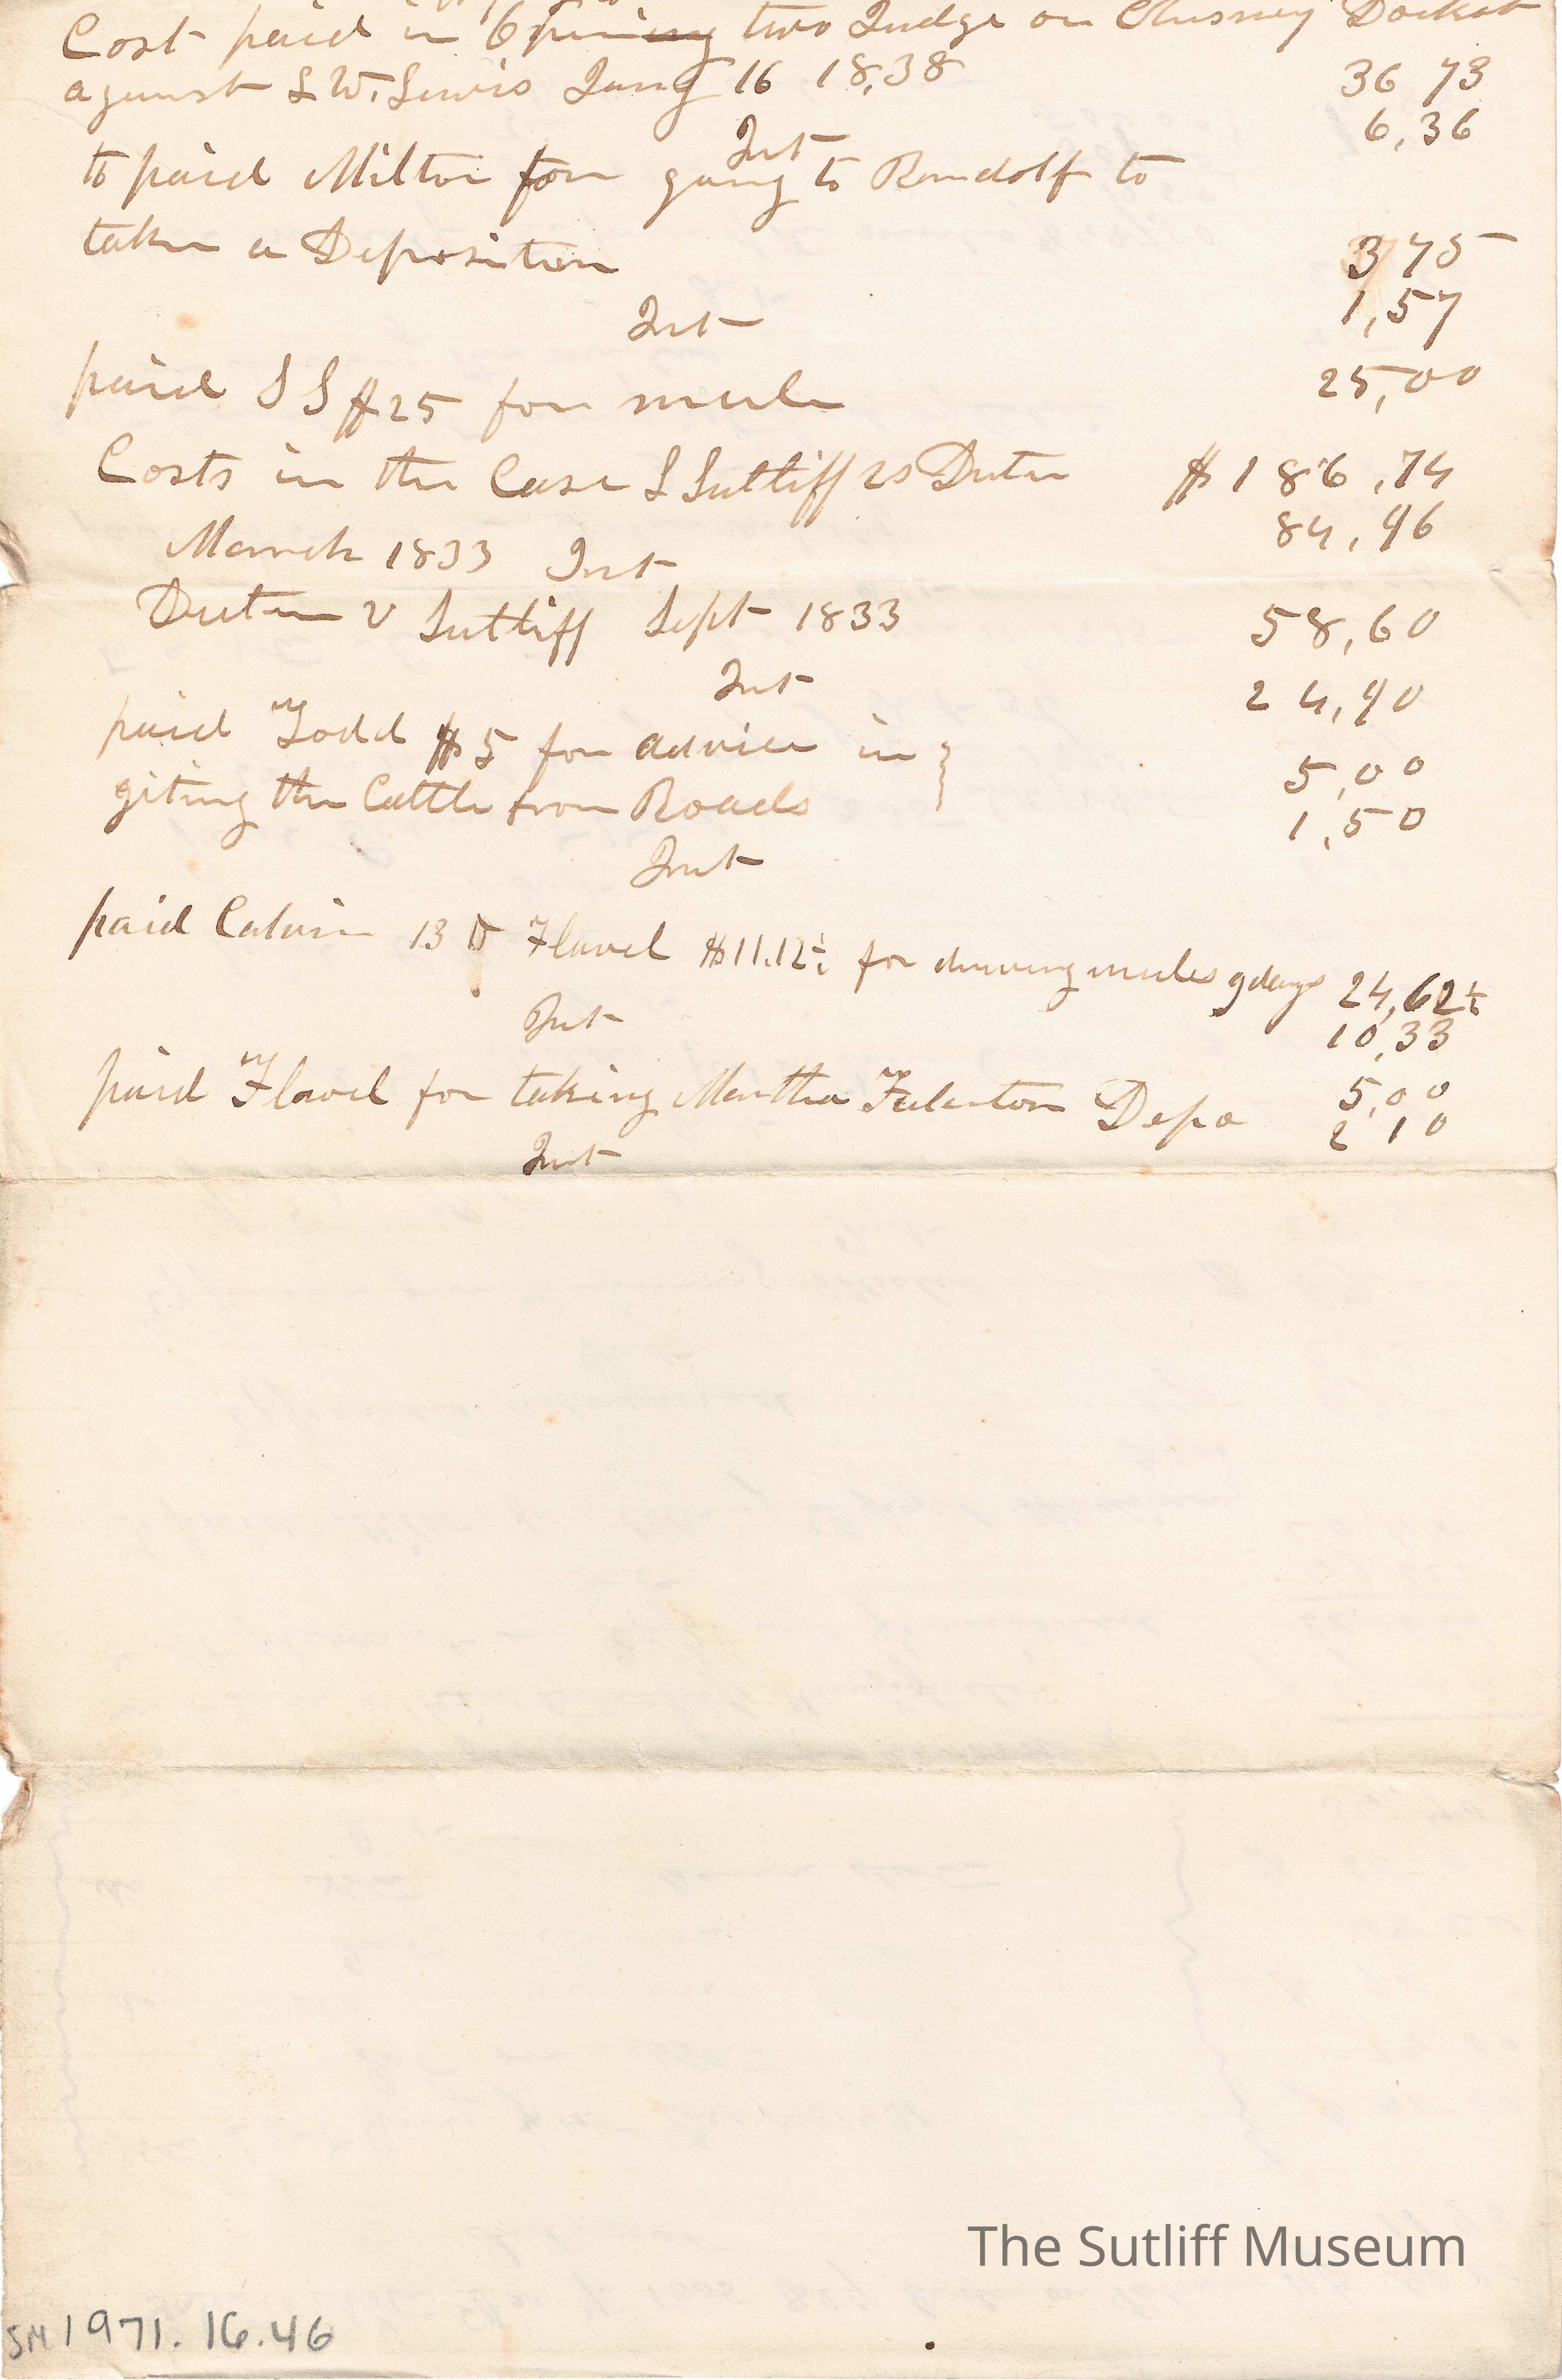 Cost paid in Opening two Judge on Chusney Docket
against L W. Lewis Jany 16 18,38 36 73
Int 6,36
to paid Milton for going to Randolf to
taken a Deposition 3 75
Int 1,57
paid S S $25 for mule 25,00
Costs in the Case L Sutliff vs Duten $186,74
March 1833 Int 84,96
Duten v Sutliff Sept 1833 58,60
Int 24,90
paid Todd $5 for advice in } 5,00
giting the Cattle from Roads
Int 1,50
paid Calvin 13 Flavel $11.12½ for driving mules 9 days 24,62½
Int 10,33
paid Flavel for taking Martha Fulerton Depo 5,00
Int 2 10
The Sutliff Museum
SM 1971.16.46